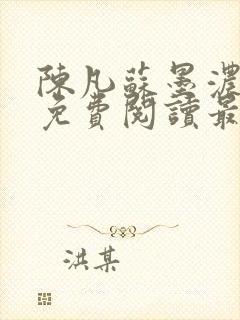 陳凡蘇墨濃
免費閱讀最
洪某